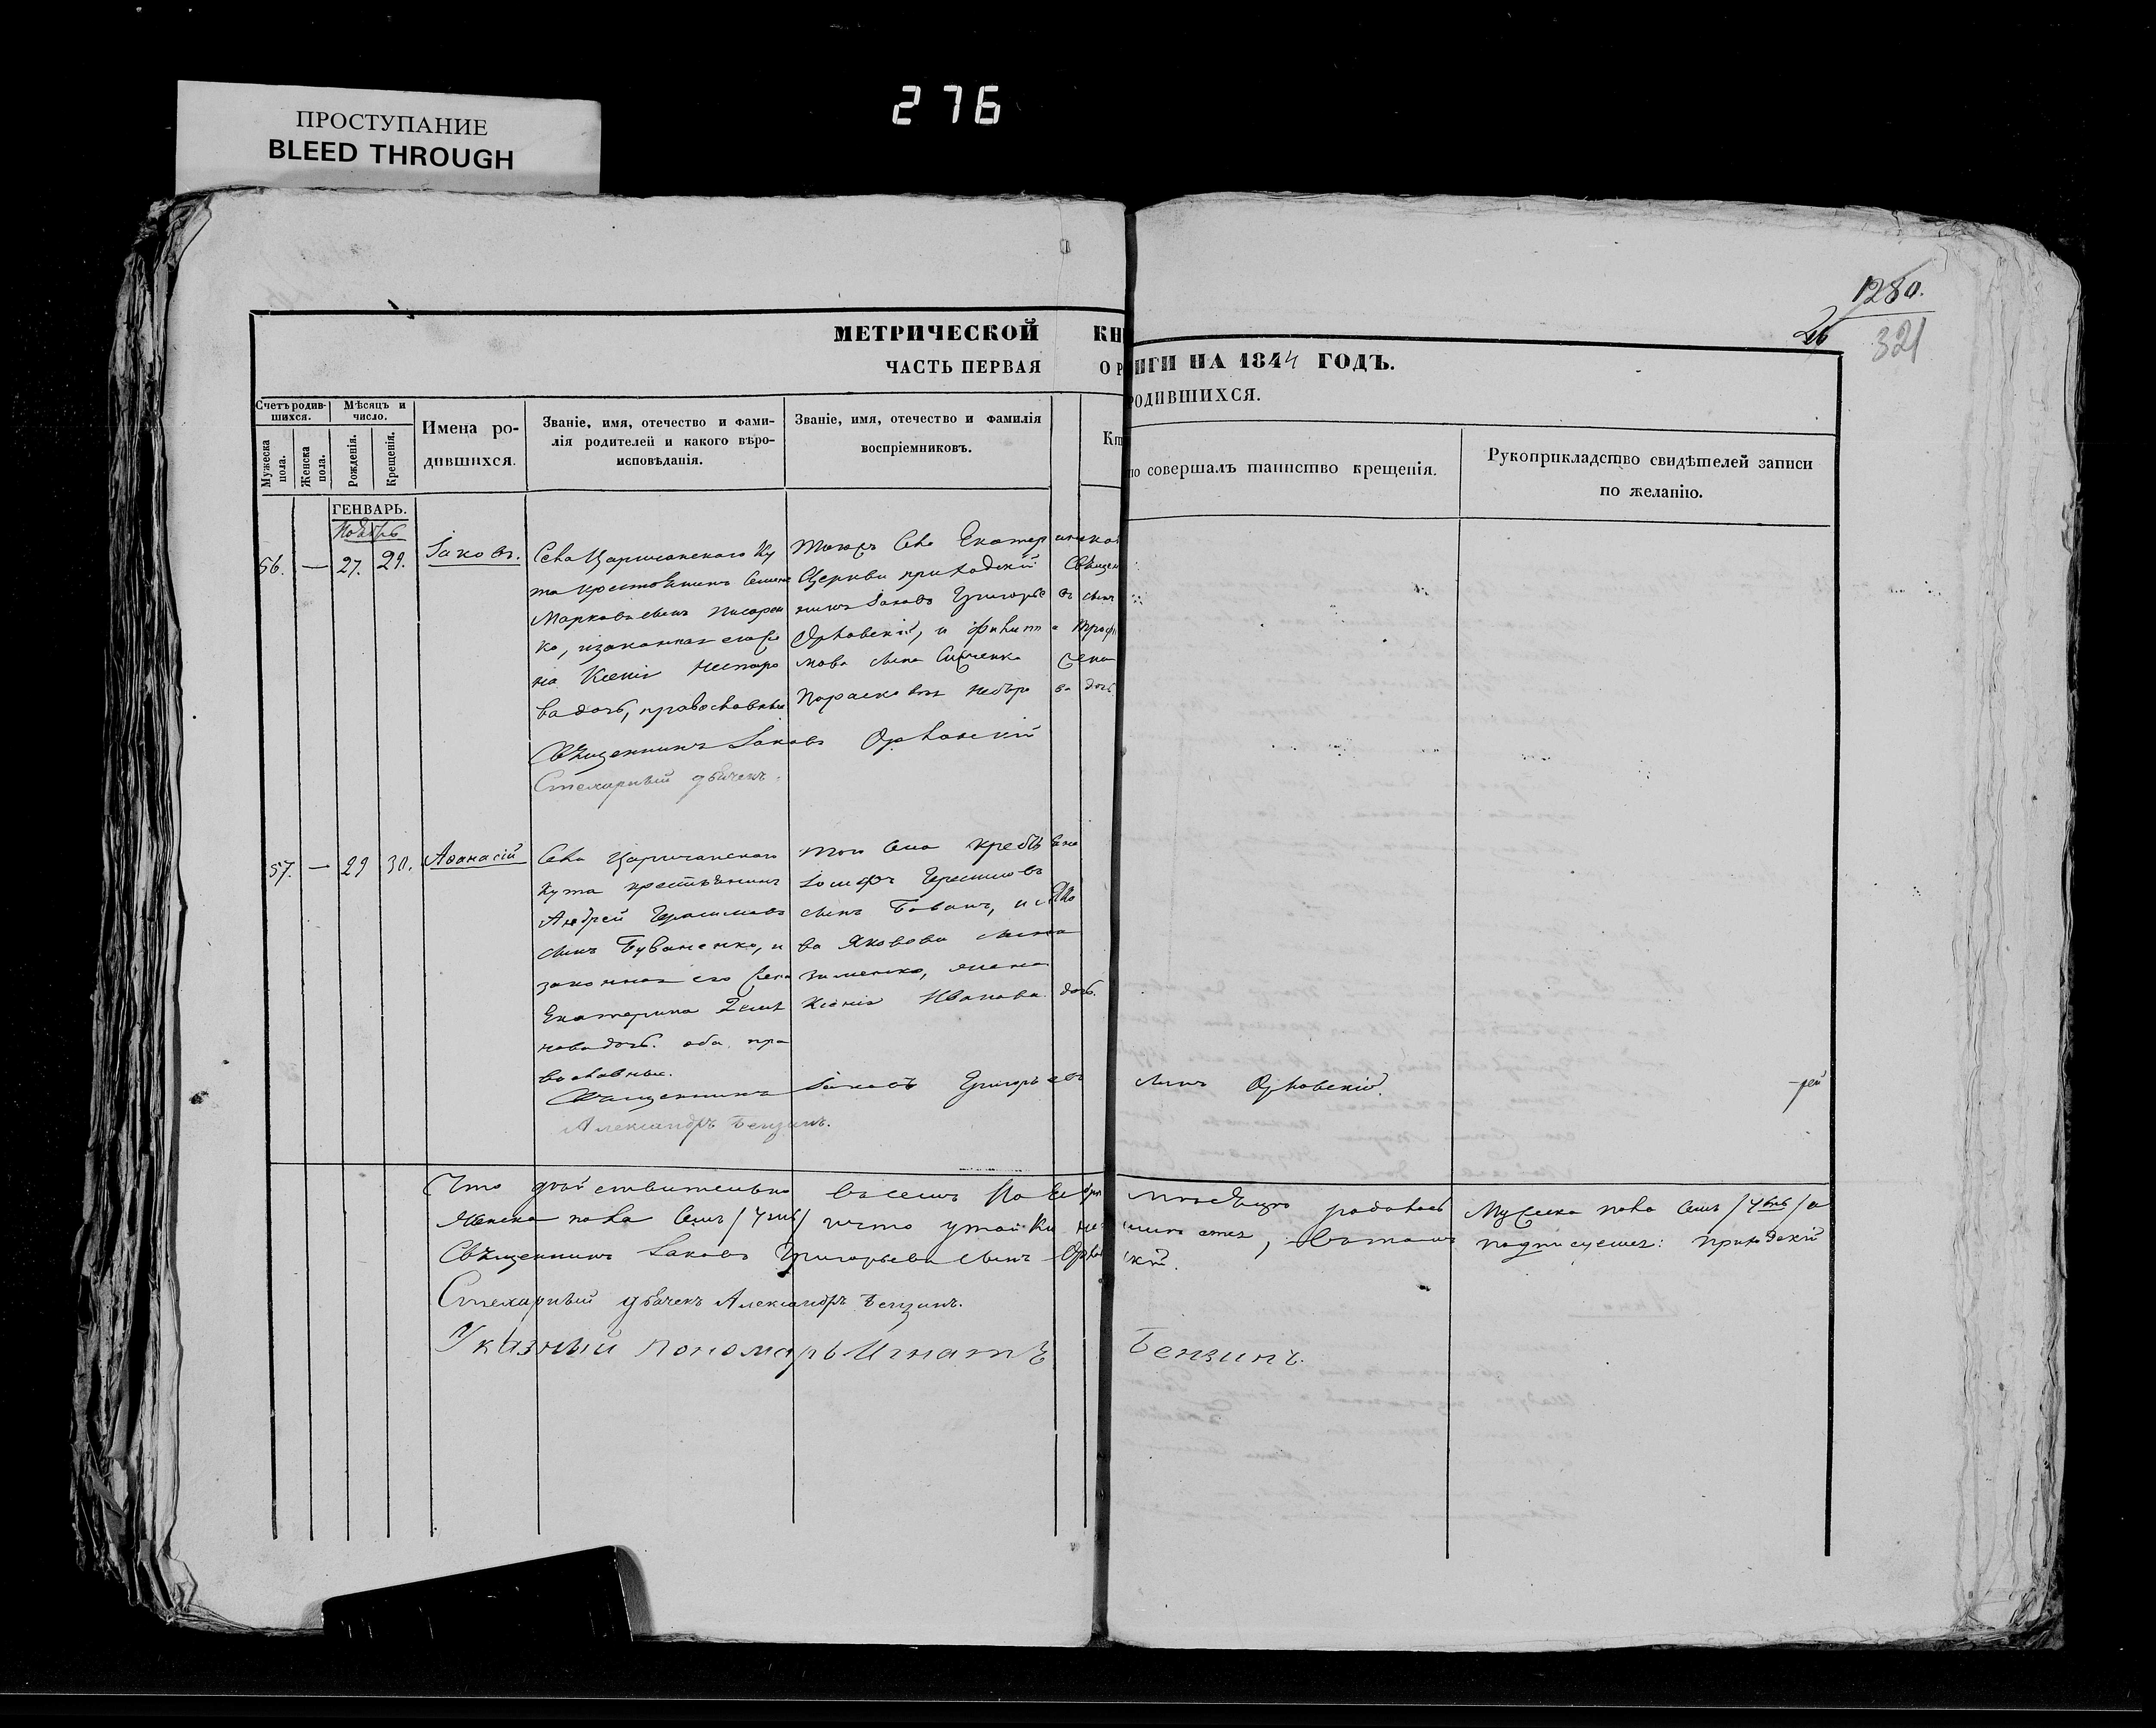 276
ПРОСТУПАНИЕ
BLEED THROUGH
1280.
26
321
МЕТРИЧЕСКОЙ КНИГИ НА 1844 ГОДЪ.
ЧАСТЬ ПЕРВАЯ О РОДИВШИХСЯ.
Счетъ родившихся.
Мужеска пола.
Женска пола.
Мѣсяцъ и число.
Рожденія.
Крещенія.
Имена родившихся.
Званіе, имя, отечество и фамилія родителей и какого вѣроисповѣданія.
Званіе, имя, отечество и фамилія воспріемниковъ.
Кто совершалъ таинство крещенія.
Рукоприкладство свидѣтелей записи по желанію.
ГЕНВАРЬ.
Ноябрь
56. — 27. 29. Іаковъ.
Села Царичанского Ку
та крестьянинъ Семенъ
Марковъ сынъ Писарен
ко, и законная его же
на Ксенія Несторо
ва дочь, православные
Тогожъ села Екатерининской
Церкви приходскій Священ
никъ Іаковъ Григорьевъ сынъ
Орловскій, и Филипа Троф
мова сына жена
Параскева Петрова дочь.
Священникъ Іаковъ Орловскій
Стихарный дьячекъ.
57. — 29 30. Аѳанасій
Села Царичанского
Кута крестьянинъ
Андрей Герасимовъ
сынъ Буваненко, и
законная его жена
Екатерина
нова дочь. оба пра
вославные.
того села
Іосифъ
сынъ
ва Яковова сына
жена
Ксенія Иванова дочь.
Священникъ Іаковъ Григорьевъ сынъ Орловскій.
рей
Александръ Бензинъ.
Что дѣйствительно въ семъ Ноябрѣ мѣсяцѣ родилось Мужеска пола семь / 7мь / а
Женска пола семь / 7мь / и что утайки не, въ томъ подписуемся: приходскій
Священникъ Іаковъ Григорьевъ сынъ Орловскій.
Стихарный дьячекъ Александръ Бензинъ.
Указный пономарь Игнатъ Бензинъ.